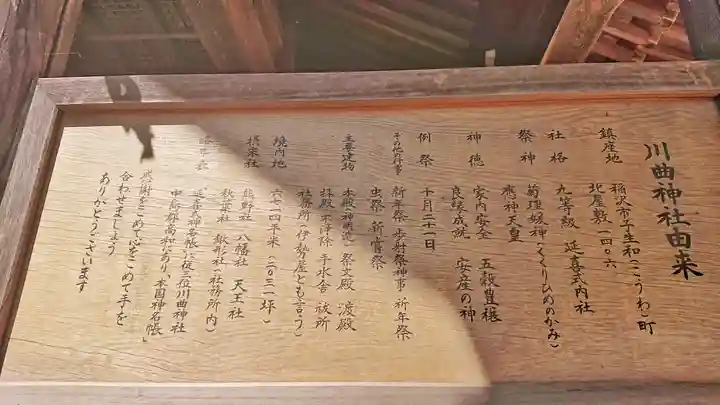 川曲神社由来
鎮座地 稲沢市子生和(こうわ)町
北屋敷一四〇六
社格 九等級 延喜式内社
祭神 菊理媛神(くくりひめのかみ)
應神天皇
神徳 家内安全 五穀豊穣
良縁成就 安産の神
例祭 十月二十一日
その他祭事 新年祭 歩射祭神事 祈年祭
虫祭 新嘗祭
主要建物 本殿(神明造) 祭文殿 渡殿
拝殿 不浄除 手水舎 祓所
社務所(伊勢屋とも言う)
境内地 六七一四平米(二〇三一坪)
摂末社 熊野社 八幡社 天王社
秋葉社 鍬形社(社務所内)
延喜式神名帳に従三位川曲神社
中島郡高和にあり、本国神名帳」
感謝をこめて心をこめて手を
合わせましょう
ありがとうございます